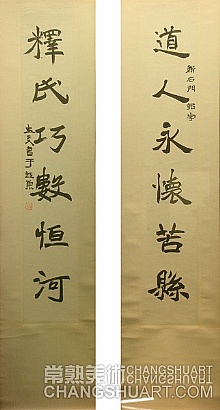 道人永懷苦縣
釋氏巧數恒河
常熟美術CHANGSHUART
CHANGSHUART.COM